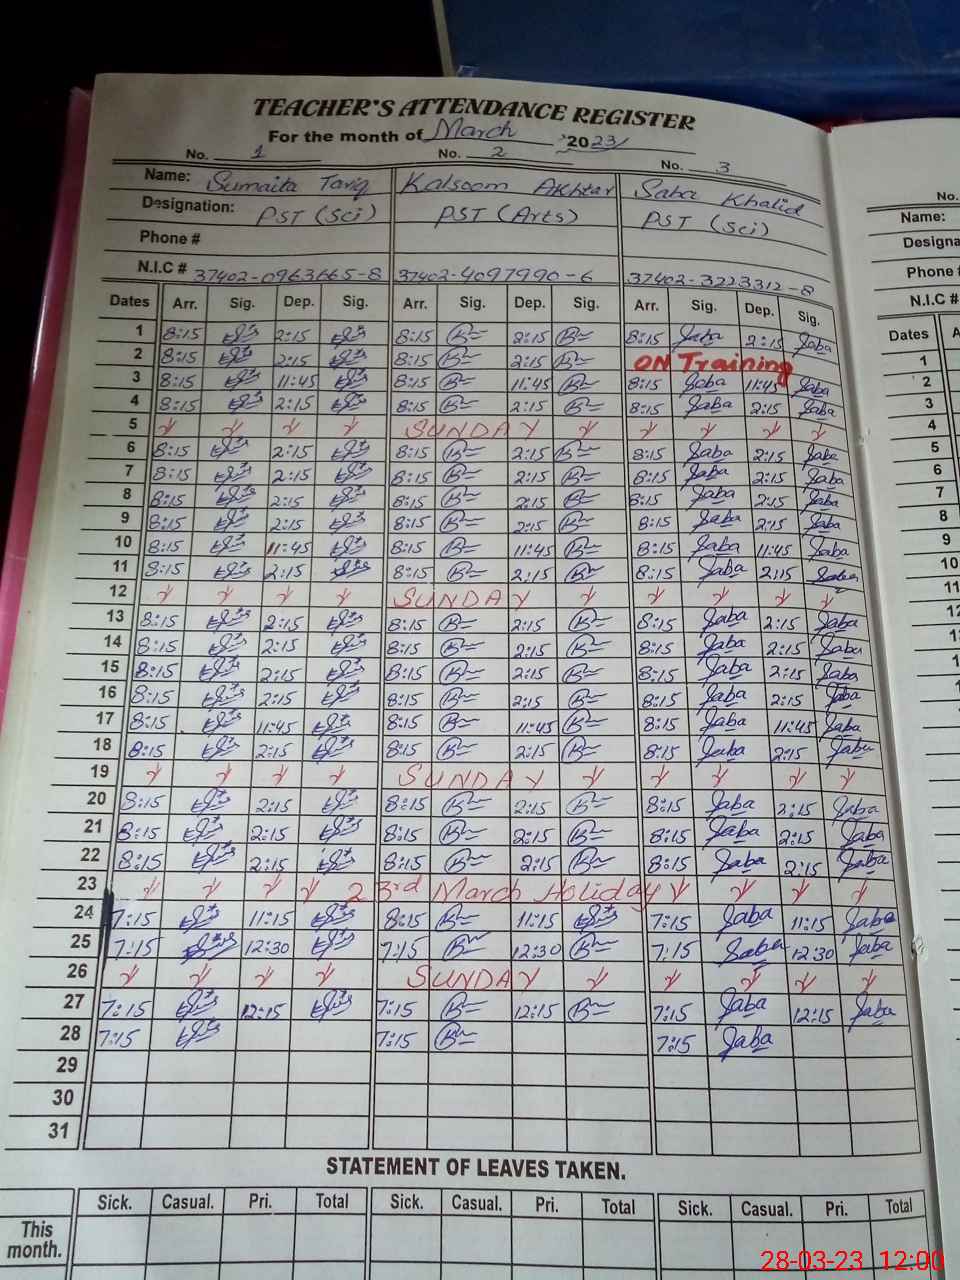 TEACHER'S ATTENDANCE REGISTER
For the month of March 2023
No. 1 No. 2 No. 3
Name: Sumaita Tariq Kalsoom Akhtar Saba Khalid
Designation: PST (Sci) PST (Arts) PST (Sci)
Phone #
N.I.C # 37402-0963665-8 37402-4097990-6 37402-3223312-8
Dates Arr. Sig. Dep. Sig. Arr. Sig. Dep. Sig. Arr. Sig. Dep. Sig.
1 8:15 2:15 8:15 2:15 8:15 Saba 2:15 Saba
2 8:15 2:15 8:15 2:15 ON Training
3 8:15 11:45 8:15 11:45 8:15 Saba 11:45 Saba
4 8:15 2:15 8:15 2:15 8:15 Saba 2:15 Saba
5 SUNDAY
6 8:15 2:15 8:15 2:15 8:15 Saba 2:15 Saba
7 8:15 2:15 8:15 2:15 8:15 Saba 2:15 Saba
8 8:15 2:15 8:15 2:15 8:15 Saba 2:15 Saba
9 8:15 2:15 8:15 2:15 8:15 Saba 2:15 Saba
10 8:15 11:45 8:15 11:45 8:15 Saba 11:45 Saba
11 8:15 2:15 8:15 2:15 8:15 Saba 2:15 Saba
12 SUNDAY
13 8:15 2:15 8:15 2:15 8:15 Saba 2:15 Saba
14 8:15 2:15 8:15 2:15 8:15 Saba 2:15 Saba
15 8:15 2:15 8:15 2:15 8:15 Saba 2:15 Saba
16 8:15 2:15 8:15 2:15 8:15 Saba 2:15 Saba
17 8:15 11:45 8:15 11:45 8:15 Saba 11:45 Saba
18 8:15 2:15 8:15 2:15 8:15 Saba 2:15 Saba
19 SUNDAY
20 8:15 2:15 8:15 2:15 8:15 Saba 2:15 Saba
21 8:15 2:15 8:15 2:15 8:15 Saba 2:15 Saba
22 8:15 2:15 8:15 2:15 8:15 Saba 2:15 Saba
23 23rd March Holiday
24 7:15 11:15 8:15 11:15 7:15 Saba 11:15 Saba
25 7:15 12:30 7:15 12:30 7:15 Saba 12:30 Saba
26 SUNDAY
27 7:15 12:15 7:15 12:15 7:15 Saba 12:15 Saba
28 7:15 7:15 7:15 Saba
29
30
31
STATEMENT OF LEAVES TAKEN.
Sick. Casual. Pri. Total Sick. Casual. Pri. Total Sick. Casual. Pri. Total
This
month.
28-03-23 12:00
No.
Name:
Designa
Phone #
N.I.C #
Dates
1
2
3
4
5
6
7
8
9
10
11